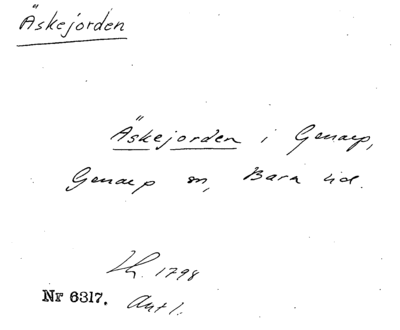 Äskejorden
Äskejorden i Genarp,
Genarp sn, Bara hd.
Lh. 1798
Nr 6317. Ant 1.